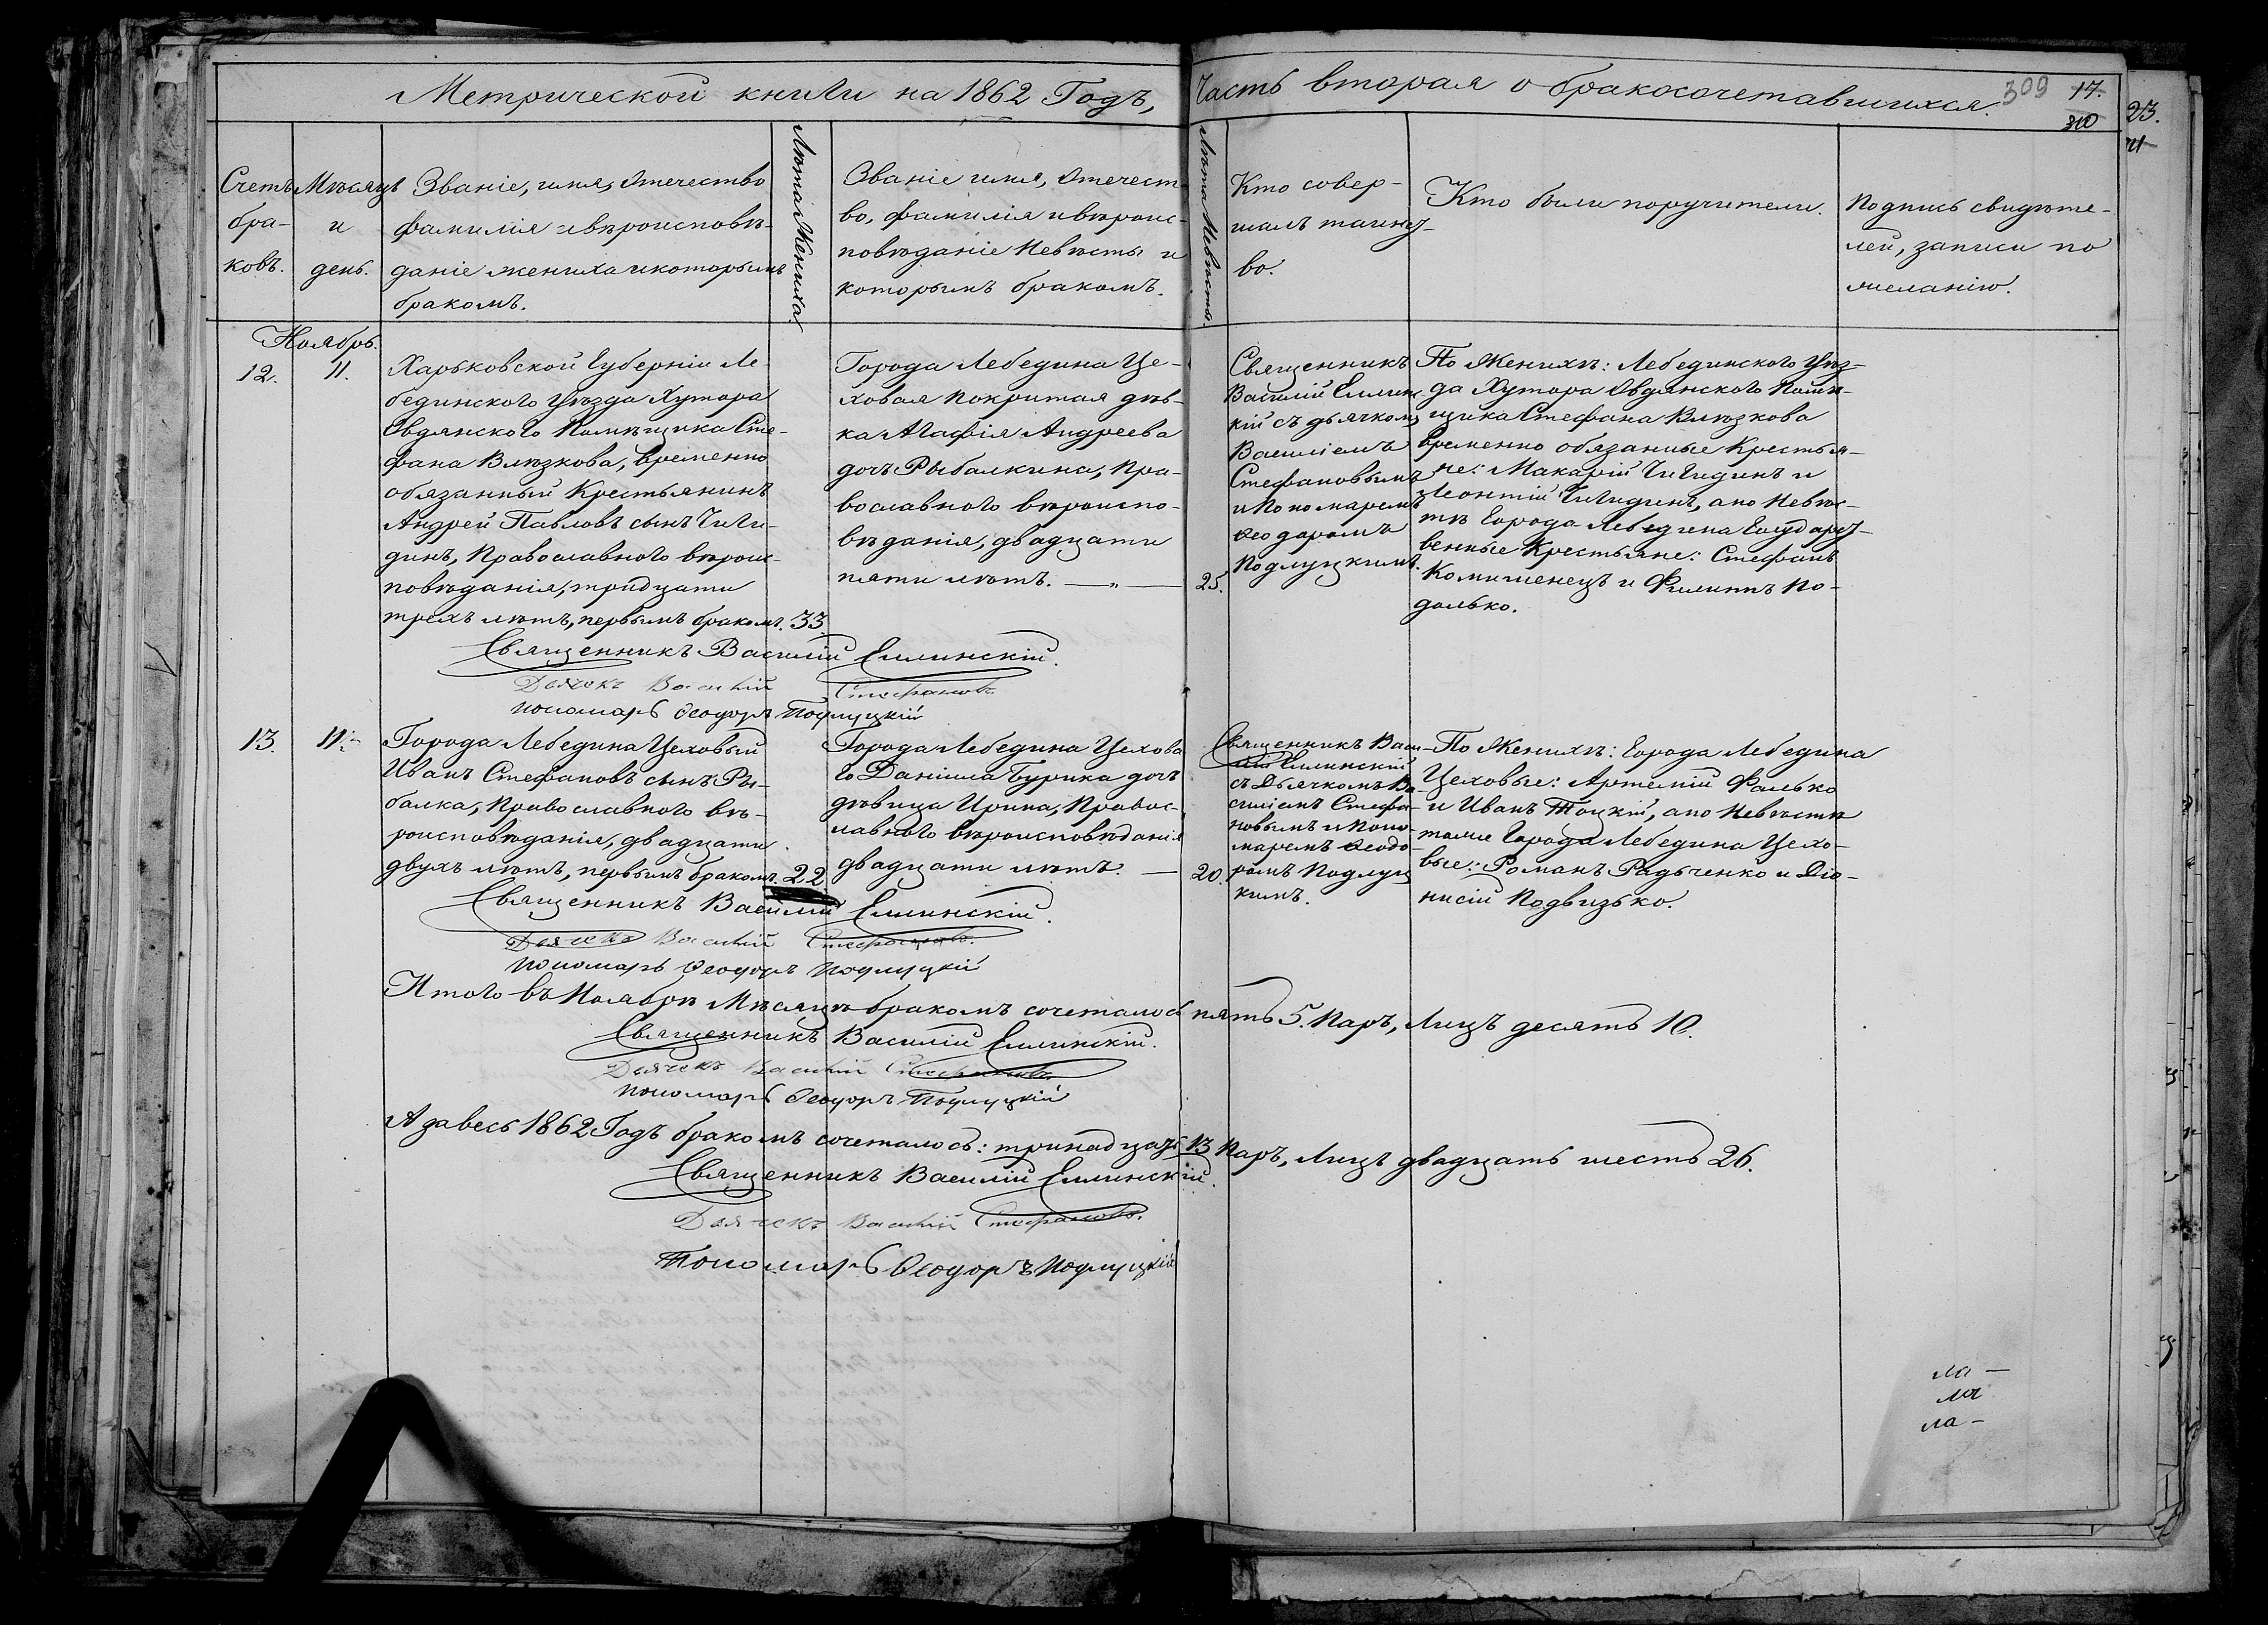 Метрической книги на 1862 Годъ, Часть вторая о бракосочетавшихся.
309
17.
310
23.
Счетъ
бра-
ковъ.
Мѣсяцъ
и
день.
Званіе, имя, Отечество
фамилія и вѣроисповѣ-
даніе жениха и которымъ
бракомъ.
Лѣта Жениха
Званіе имя, Отечест-
во, фамилія и вѣроис-
повѣданіе Невѣсты и
которымъ бракомъ.
Лѣта Невѣсты.
Кто совер-
шалъ таинс-
во.
Кто были поручители.
Подпись свидѣте-
лей, записи по
желанію.
Ноябрь.
12.
11.
Харьковской Губерніи Ле-
бединского уѣзда Хутора
Овдянского Помѣщика Сте-
фана Влѣзкова, временно
обязанный Крестьянинъ
Андрей Павловъ сынъ Чиги-
динъ, Православного вѣроис-
повѣданія, тридцати
трехъ лѣтъ, первымъ бракомъ.
33
Города Лебедина Це-
ховая покритая дѣв-
ка Агафія Андреева
дочь Рыбалкина, Пра-
вославного вѣроиспо-
вѣданія, двадцати
пяти лѣтъ. — „ —
25.
Священникъ
Василій Еллинс-
кій съ дьячкомъ
Василіемъ
Стефановымъ
и Пономаремъ
Ѳеодоромъ
Подлуцкимъ.
По Женихѣ: Лебединского Уѣз-
да Хутора Овдянского Помѣ-
щика Стефана Влѣзкова
временно обязанные Крестья-
не: Макарій Чигидинъ и
Леонтій Чигидинъ, а по Невѣс-
тѣ Города Лебедина Государст-
венные Крестьяне: Стефанъ
Комишенецъ и Филиппъ По-
далько.
Священникъ Василій Еллинскій.
Дьячекъ Василій Стефановъ
пономарь Ѳеодоръ Подлуцкій
13.
11.
Города Лебедина Цеховый
Иванъ Стефановъ сынъ Ры-
балка, Православного вѣ-
роисповѣданія, двадцати
двухъ лѣтъ, первымъ бракомъ.
22
Города Лебедина Цехова
го Даніила Бурика дочь
дѣвица Ирина, Правос-
лавного вѣроисповѣданія
двадцати лѣтъ. —
20.
Священникъ Васи-
лій Еллинскій
съ Дьячкомъ Ва-
силіемъ Стефа-
новымъ и Поно-
маремъ Ѳеодо-
ромъ Подлуц
кимъ.
По Женихѣ: Города Лебедина
Цеховые: Артемій Фалько
и Иванъ Тоцкій, а по Невѣстѣ
тоже Города Лебедина Цехо-
вые: Романъ Радьченко и Діо-
нисій Подвизько.
Священникъ Василій Еллинскій.
Дьячекъ Василій Стефановъ.
пономарь Ѳеодоръ Подлуцкій
Итого въ Ноябрѣ Мѣсяцѣ бракомъ сочеталось пять 5. Паръ, Лицъ десять 10.
Священникъ Василій Еллинскій.
Дьячекъ Василій Стефановъ.
пономарь Ѳеодоръ Подлуцкій
А за весь 1862 Годъ бракомъ сочеталось: тринадцать 13 Паръ, Лицъ двадцать шесть 26.
Священникъ Василій Еллинскій.
Дьячекъ Василій Стефановъ.
Пономарь Ѳеодоръ Подлуцкій
ла —
ла
ла —